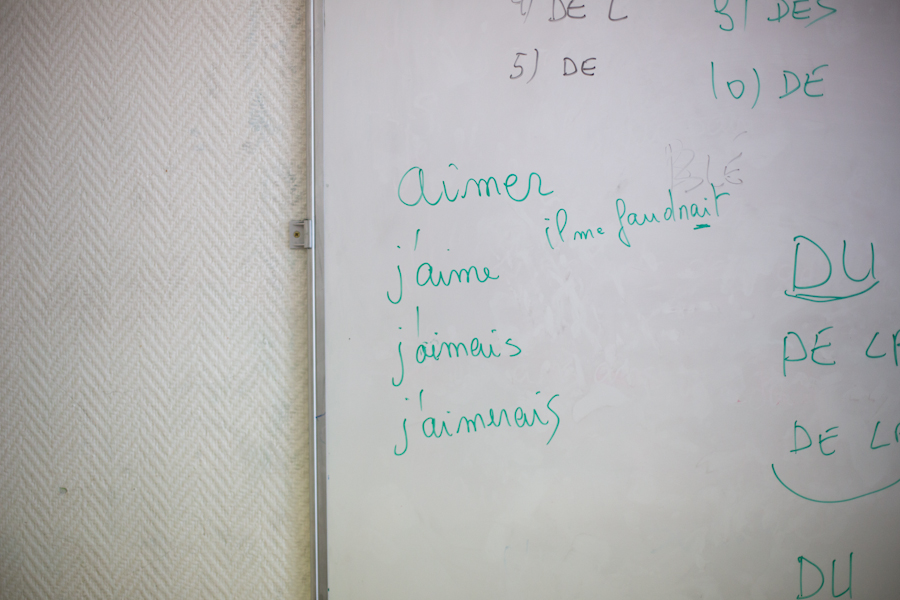 4) DE L
5) DE
9) DES
10) DE
aimer
BLÉ
il me faudrait
j'aime
j'aimais
j'aimerais
DU
DE L
DE L
DU